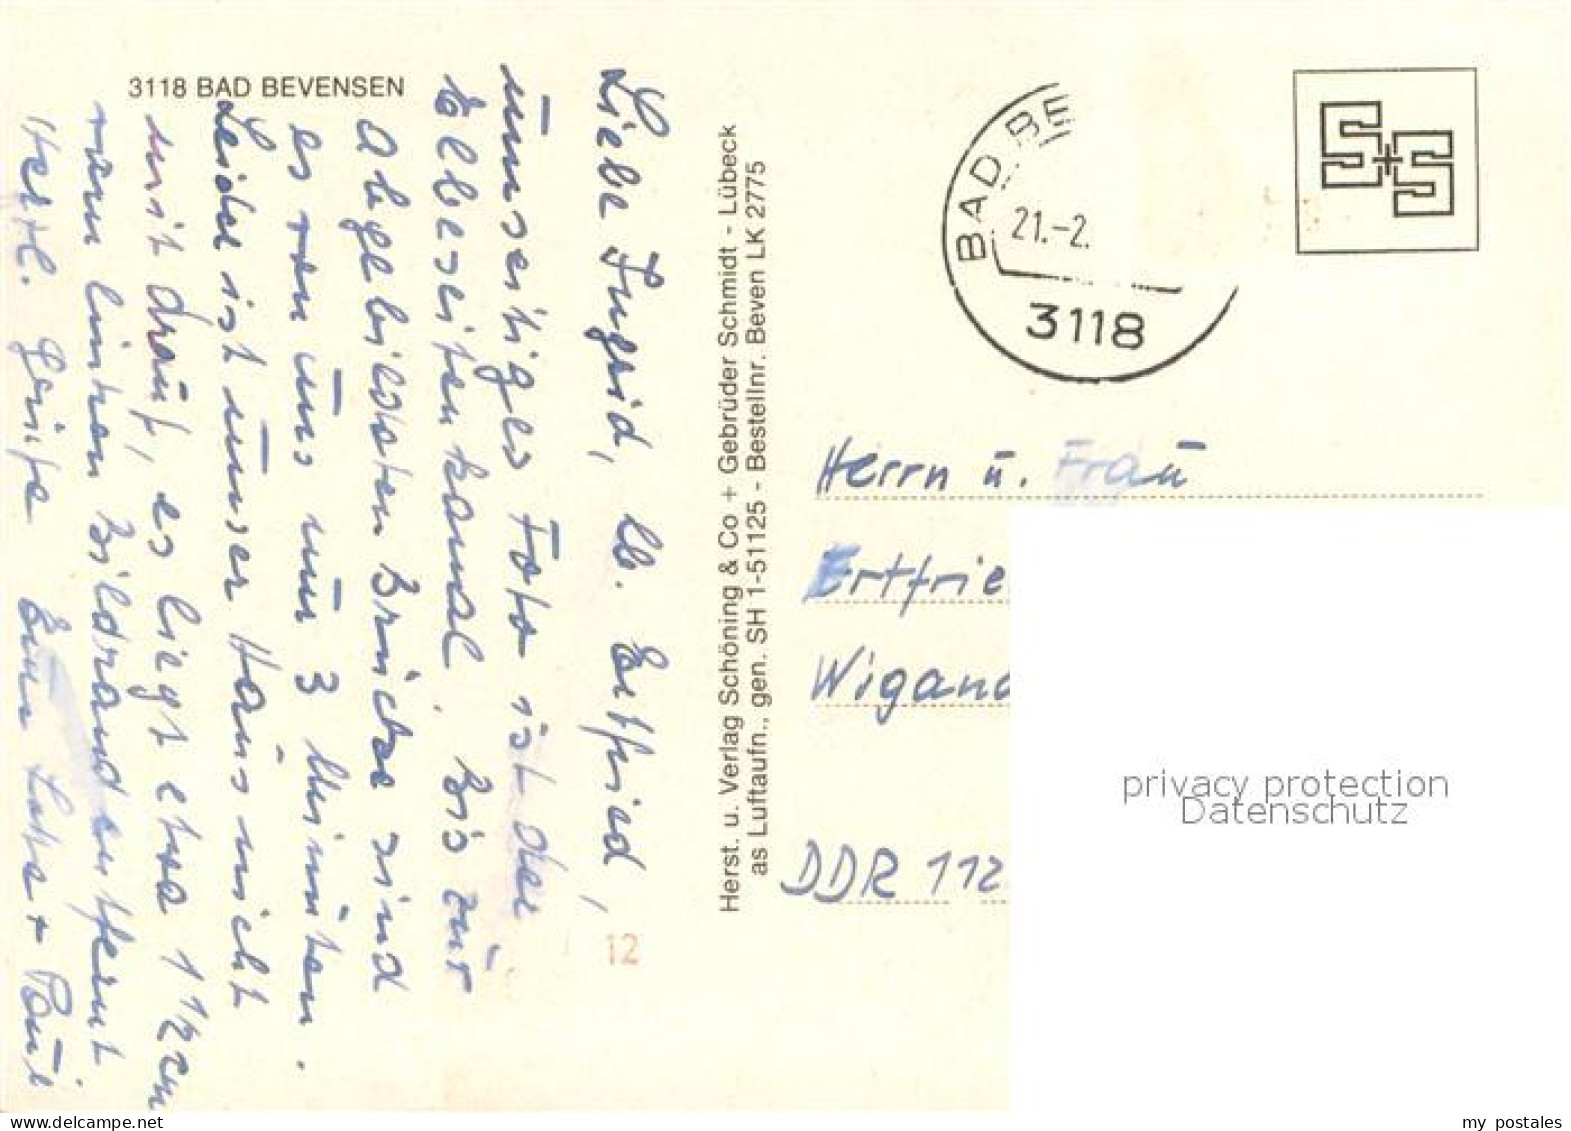 3118 BAD BEVENSEN
Liebe Ingrid, lb. Ertfried,
umseitiges Foto ist der
Elbeseitenkanal. Bis zur
abgebildeten Brücke sind
es von uns nur 3 Minuten.
Leider ist unser Haus nicht
mit drauf, es liegt etwa 1½cm
vom linken Bildrand entfernt
Herzl. Grüße Eure Lota + Paul
12
Herst. u. Verlag Schöning & Co + Gebrüder Schmidt - Lübeck
as Luftaufn., gen. SH 1-51125 - Bestellnr. Beven LK 2775
BAD BE
21.-2.
3118
S+S
Herrn u. Frau
Ertfrie
Wigand
DDR 112
privacy protection
Datenschutz
my postales